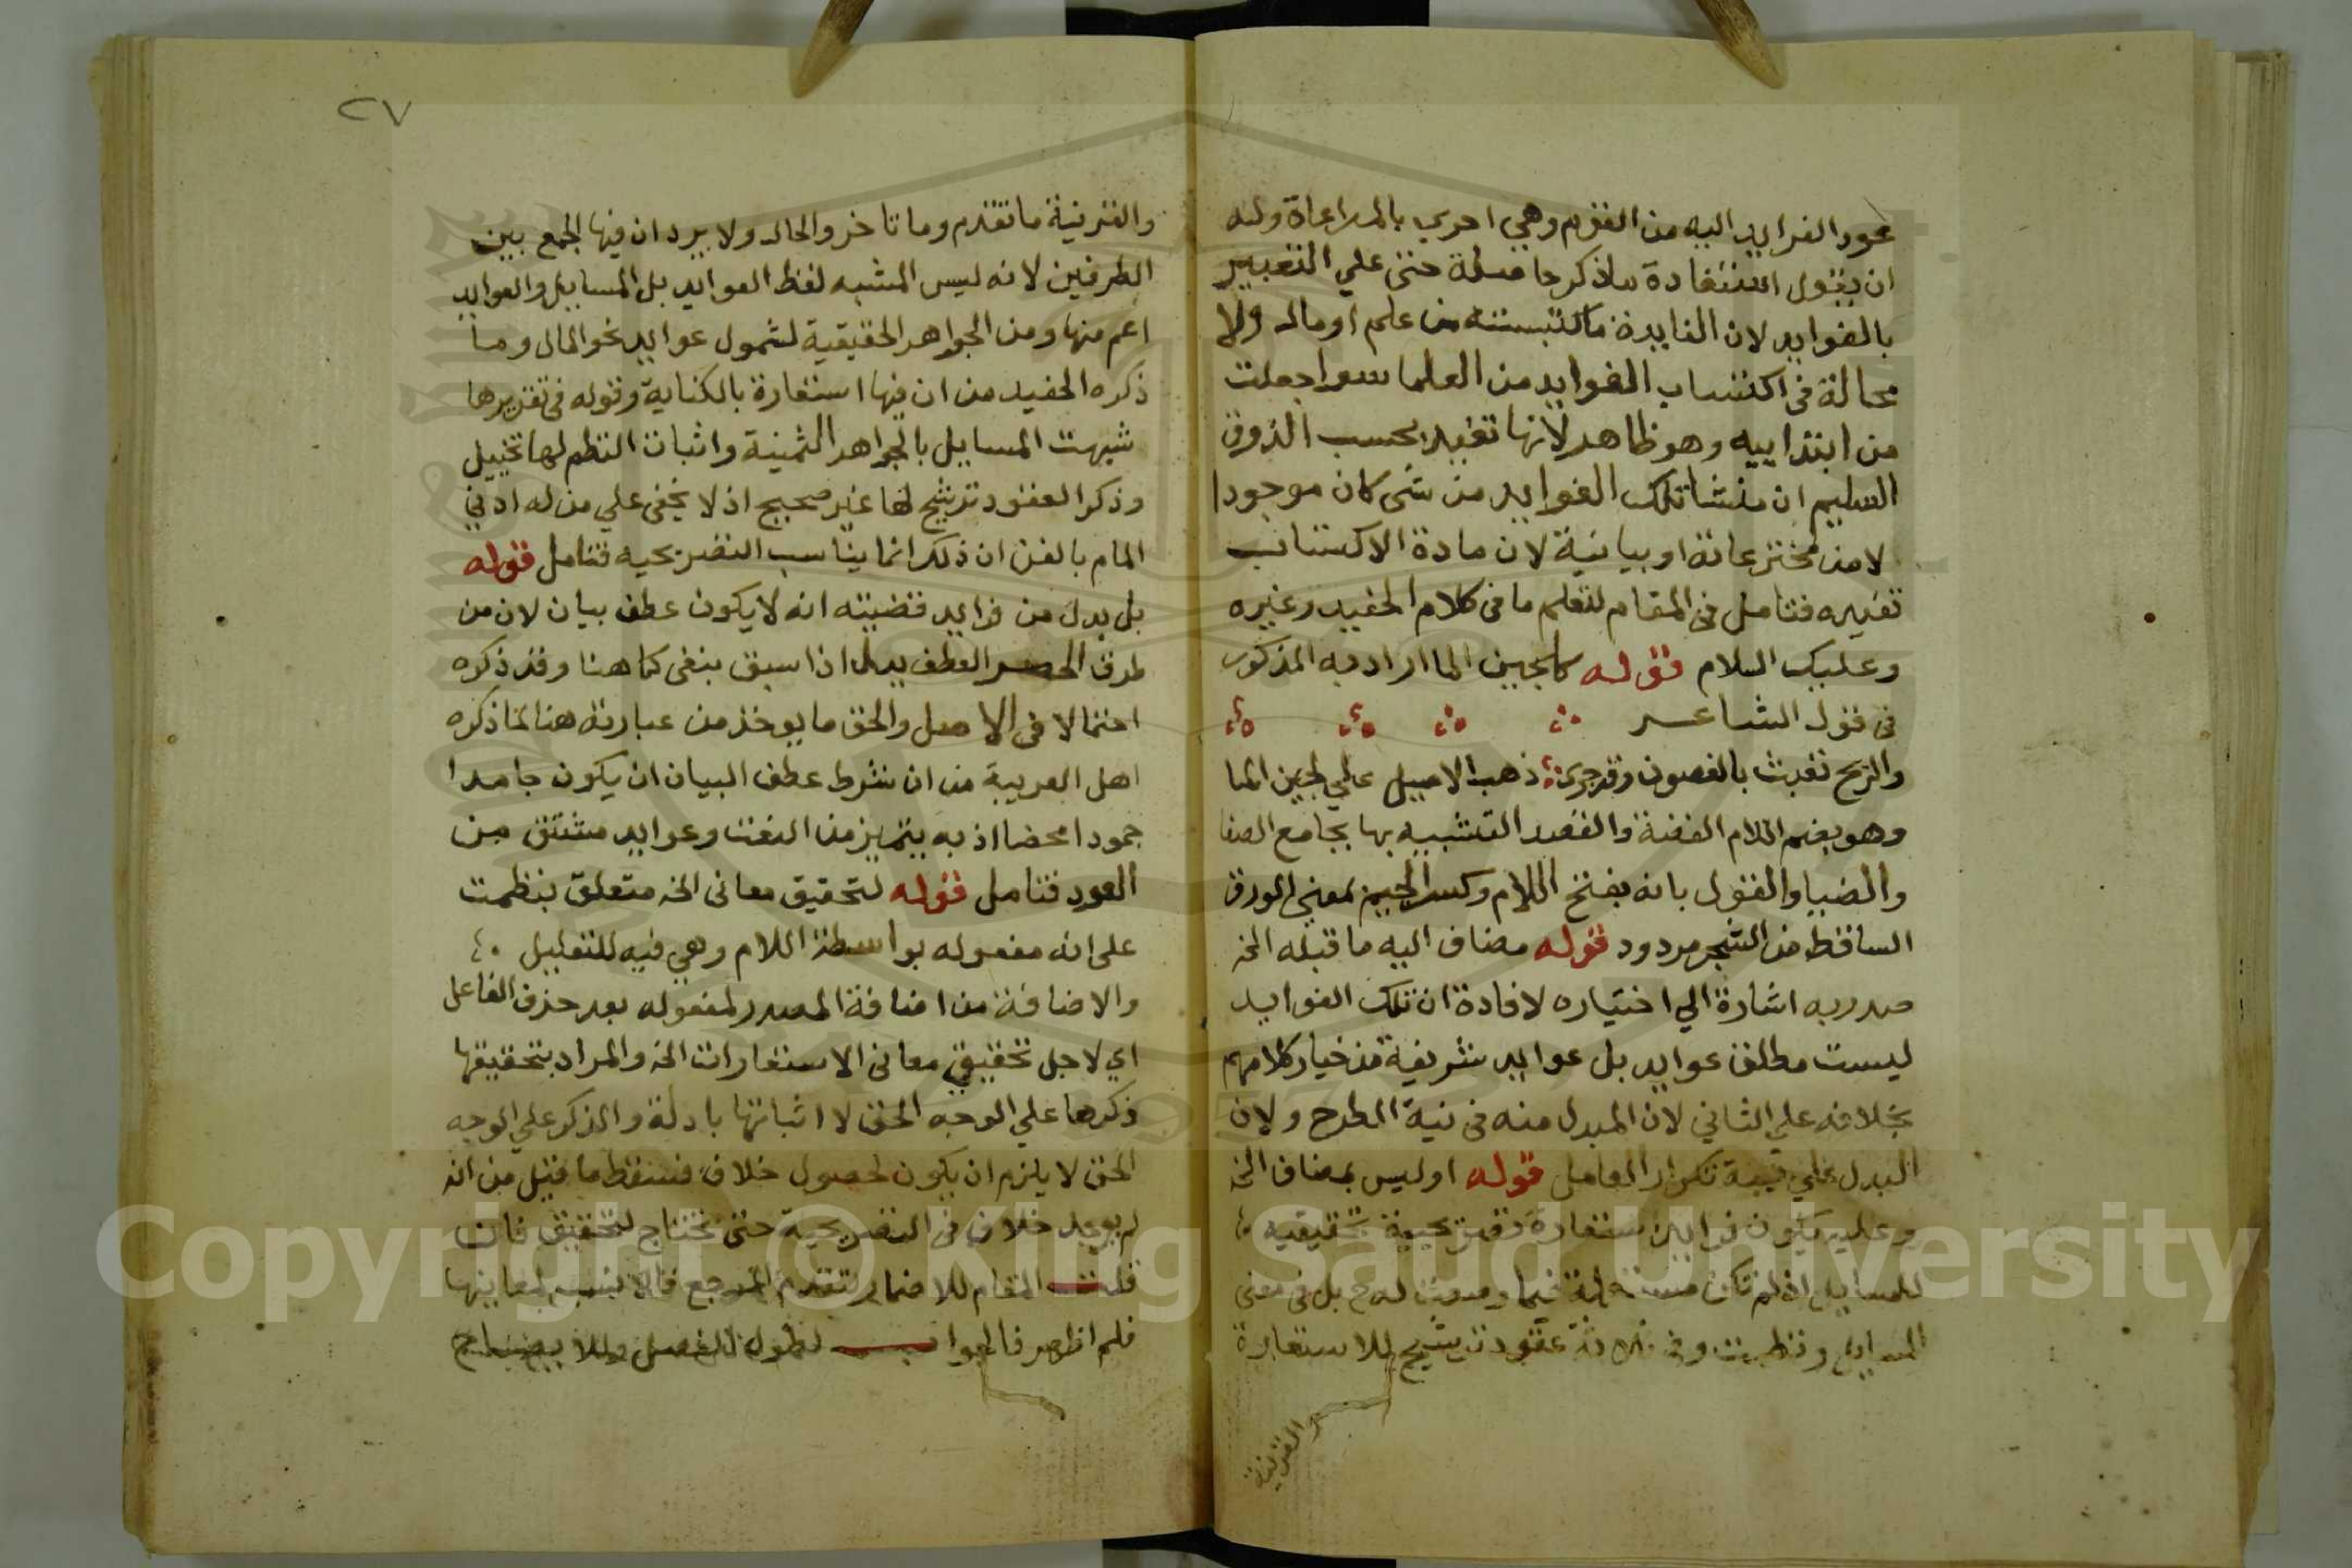 عود الفرايد اليه من الفقرم وهي احري بالمراعاة وله
ان يقول استفادة ماذكر حاصلة حتى علي التعبير
بالفوايد لان الفايدة ما اكتسبته من علم او مال ولا
محالة في اكتساب الفوايد من العلما سوا جعلت
من ابتداييه وهو ظاهر لانها تفيد بحسب الذوق
السليم ان منشا تلك الفوايد من شي كان موجودا
لا من مخترعاته او بيانية لان مادة الاكتساب
تغيره فتامل في المقام لتعلم ما في كلام الحفيد وغيره
وعليك السلام قوله كلجين الما اراد به المذكور
في قول الشاعر
والريح تعبث بالغصون وقد جرى ذهب الاصيل علي لجين الما
وهو بضم اللام الفضة والقصد التشبيه بها بجامع الصفا
والضيا والقول بانه بفتح اللام وكسر الجيم بمعني الورق
الساقط من الشجر مردود قوله مضاف اليه ما قبله الخ
صدر به اشارة الي اختياره لافادة ان تلك الفوايد
ليست مطلق عوايد بل عوايد شريفة من خيار كلامهم
بخلافه علي الثاني لان المبدل منه في نية الطرح ولان
البدل علي نية تكرار العامل قوله او ليس بمضاف الخ
وعليه يكون فرايد استعارة تصريحية تحقيقيه
للمسايل ان لم تكن مستعملة فيما وضعت له ح بل في معني
المسايل ونظمت وفي ثلاثة عقود ترشيح للاستعارة
والقرينة
٢٧
والقرينة ما تقدم وما تاخر والحال ولا يرد ان فيها الجمع بين
الطرفين لانه ليس المشبه لفظ العوايد بل المسايل والعوايد
اعم منها ومن الجواهر الحقيقية لشمول عوايد نحو المال وما
ذكره الحفيد من ان فيها استعارة بالكناية وقوله في تقديرها
شبهت المسايل بالجواهر الثمينة واثبات النظم لها تخييل
وذكر العقود ترشيح لها غير صحيح اذ لا يخفي علي من له ادني
المام بالفن ان ذلك انما يناسب التصريحيه فتامل قوله
بل بدل من فرايد قضيته انه لا يكون عطف بيان لان من
طرق الحصر العطف ببل اذا سبق بنفي كما هنا وقد ذكره
احتمالا في الاصل والحق ما يوخذ من عبارته هنا لما ذكره
اهل العربية من ان شرط عطف البيان ان يكون جامدا
جمودا محضا اذ به يتميز من النعت وعوايد مشتق من
العود فتامل قوله لتحقيق معاني الخ متعلق بنظمت
على انه مفعوله بواسطة اللام وهي فيه للتعليل
والاضافة من اضافة المصدر لمفعوله بعد حذف الفاعل
اي لاجل تحقيق معاني الاستعارات الخ والمراد بتحقيقها
ذكرها علي الوجه الحق لا اثباتها بادلة والذكر علي الوجه
الحق لا يلزم ان يكون لحصول خلاف فسقط ما قيل من انه
لم يوجد خلاف في التصريحية حتى تحتاج لتحقيق فان
قلت المقام للاضمار لتقدم المرجع فالانسب لمعانيها
فلم اظهر فالجواب لطول الفصل وللايضاح